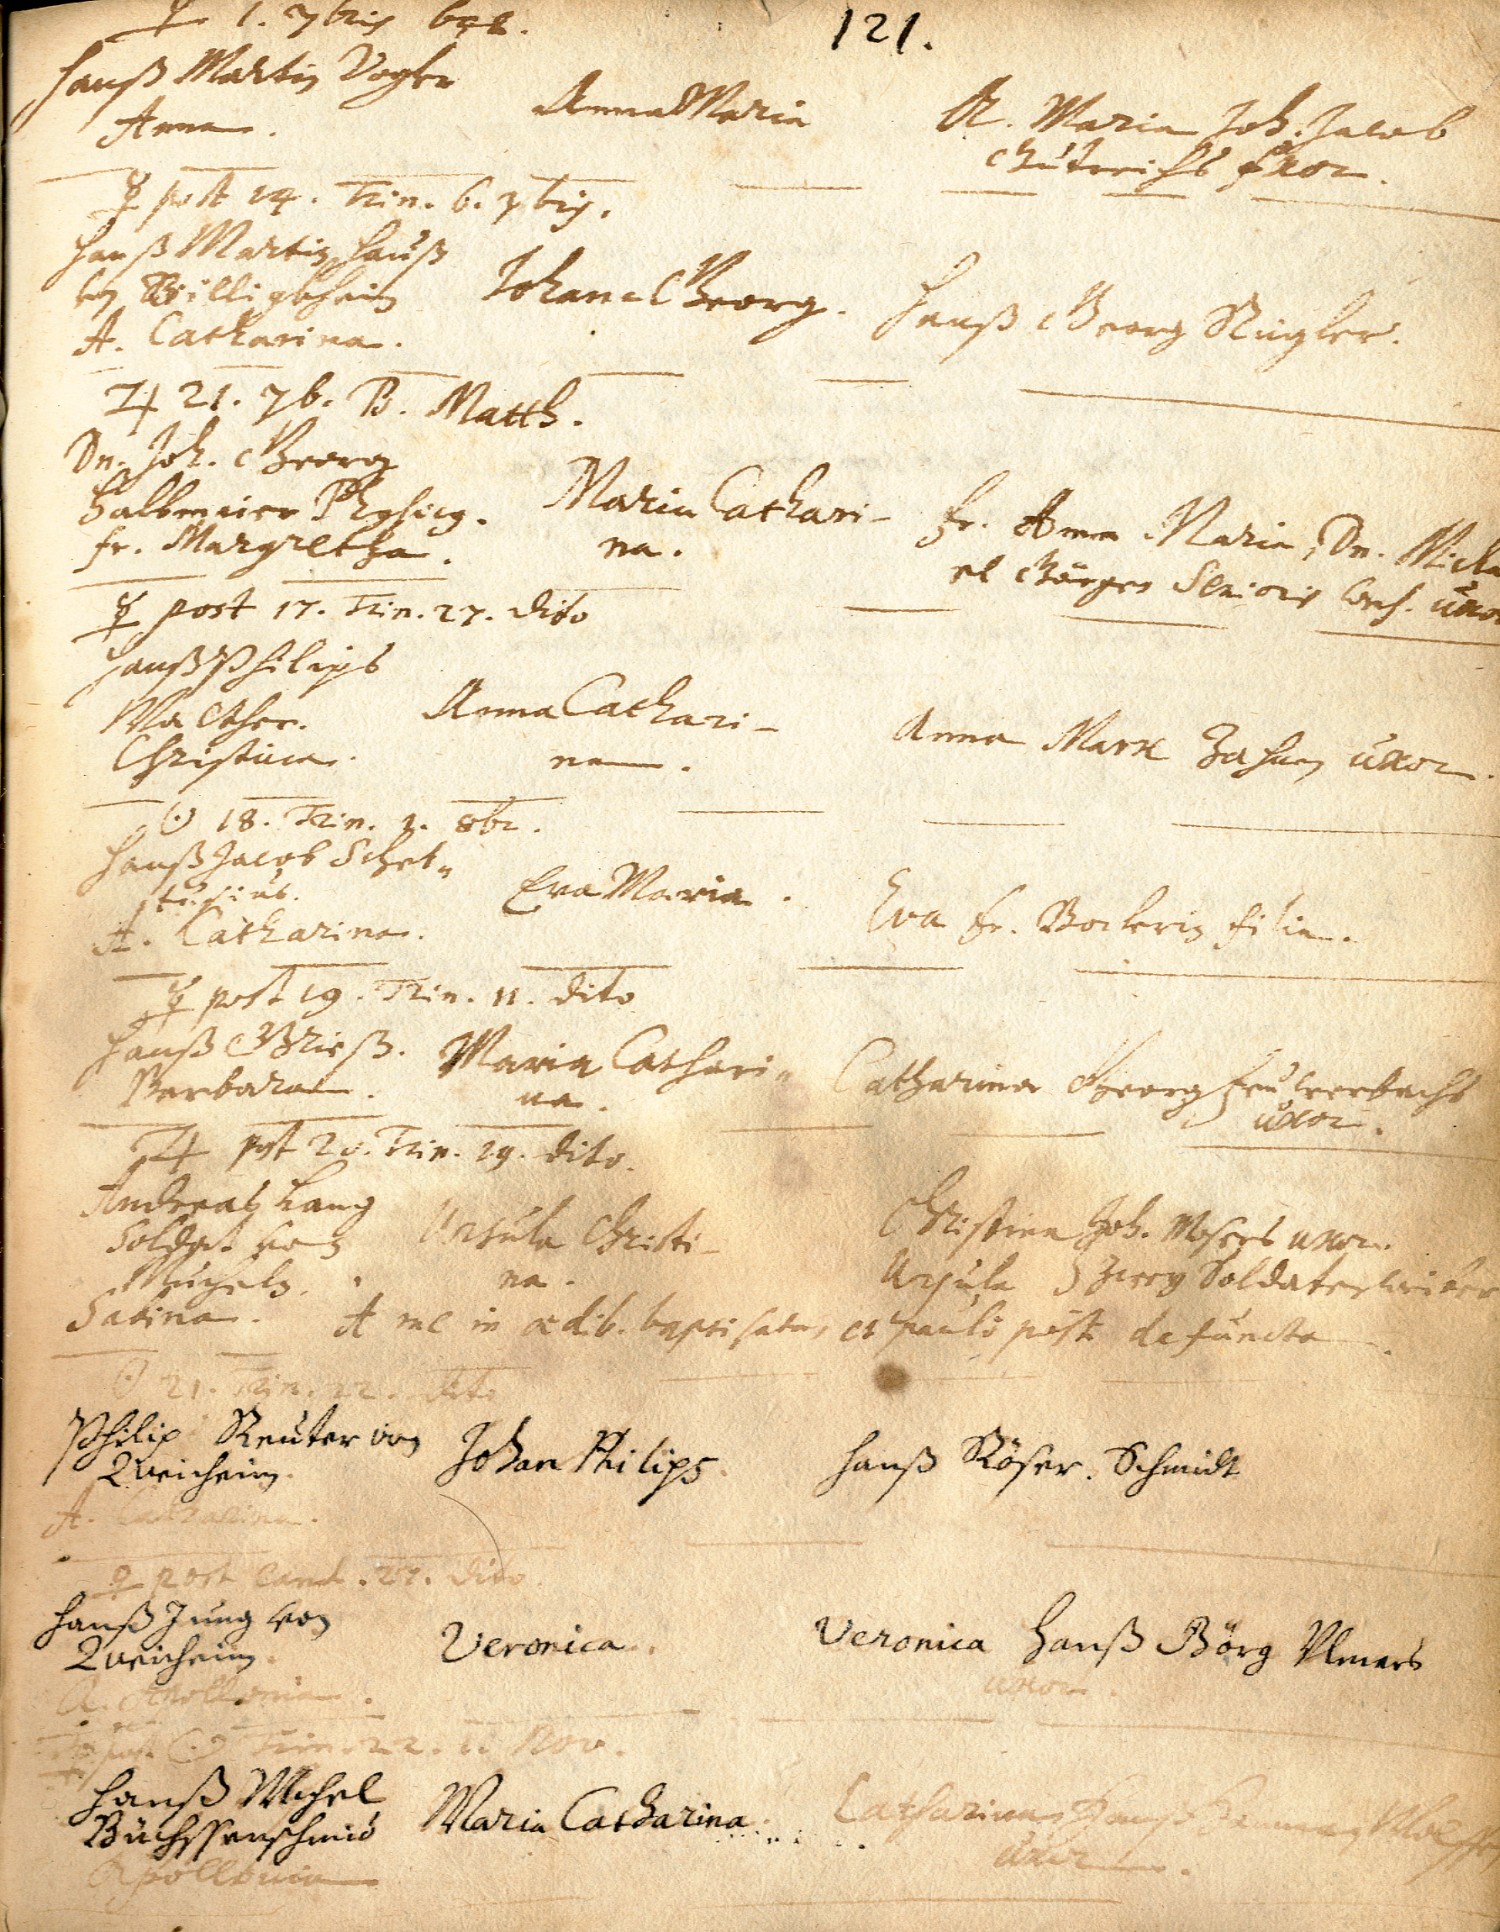 121.
1. 7bris
Hanß Martin Vogler
Anna.
Anna Maria
A. Maria Joh. Jacob
uxor.
☿ post 14. Trin. 6. 7bris.
Hanß Martin Hauß
von Billigheim
A. Catharina.
Johan Georg.
Hanß Georg Kugler.
♃ 21. 7b. B. Matth.
Dn. Joh. Georg
Physicq.
fr. Margretha.
Maria Cathari-
na.
fr. Anna Maria, Dn. Micha
el Senioris Cons. uxor
☿ post 17. Trin. 27. dito
Hanß Philips
Walther.
Christina.
Anna Cathari-
na.
Anna Marx Zahnen uxor.
☉ 18. Trin. 1. 8br.
Hanß Jacob
A. Catharina.
Eva Maria.
Eva fr. filia.
☿ post 19. Trin. 11. dito
Hanß Grieß.
Barbara.
Maria Cathari-
na.
Catharina Georg
uxor.
♃ post 20. Trin. 19. dito.
Andreas Lang
Soldat von
Sabina.
Ursula Christi-
na.
Christina Joh. Mosers uxor.
Ursula Soldaten weiber
A me in ædib. baptisata, et paulo post defuncta.
☉ 21. Trin. 22. dito
Philip Reuter von
Queicheim.
A. Catharina.
Johan Philips
Hanß Röser. Schmidt
♀ post eand. 27. dito
Hanß Jung von
Queicheim.
A. Apollonia.
Veronica.
Veronica Hanß Görg Ulmers
uxor.
post ☉ Trin. 22. Nov.
Hanß Michel
Büchssenschmid
Apollonia
Maria Catharina.
Catharina
uxor.